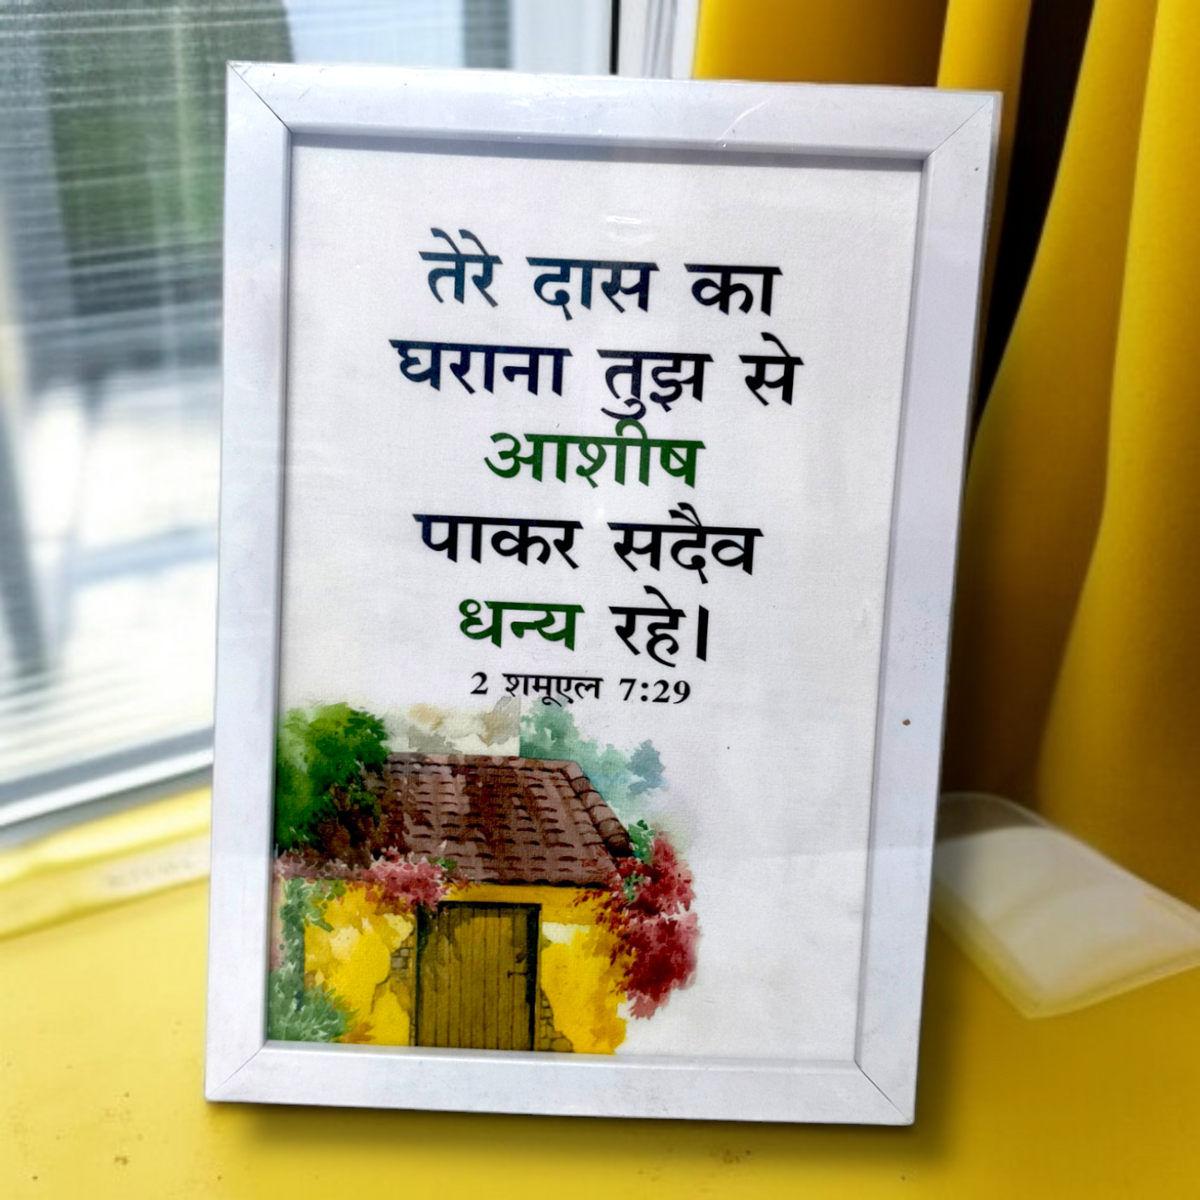 तेरे दास का
घराना तुझ से
आशीष
पाकर सदैव
धन्य रहे।
2 शमूएल 7:29